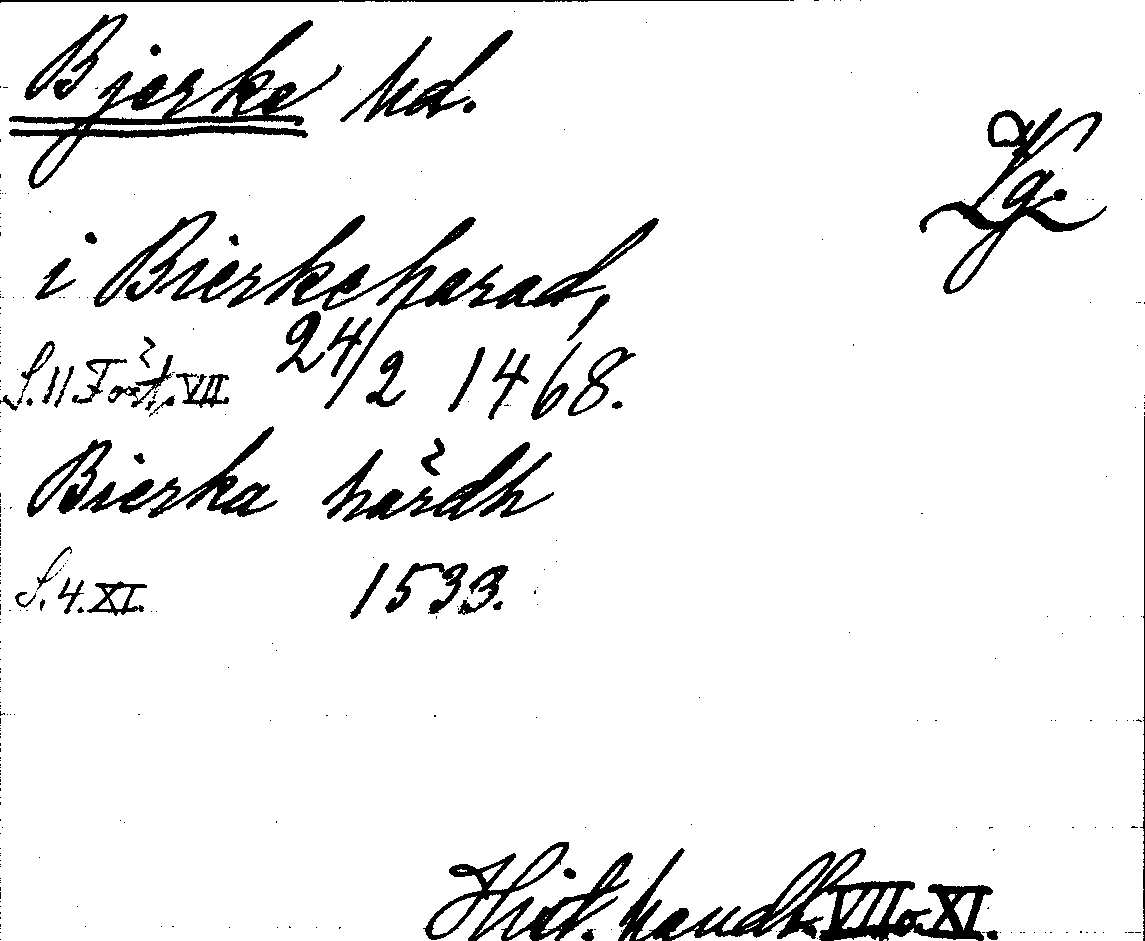 Bjerke hd.
Vg.
i Bierkeharad,
S. 11 Fört. VII. 24/2 1468.
Bierka härdh
S. 4. XI. 1533.
Hist. handl. VII o. XI.